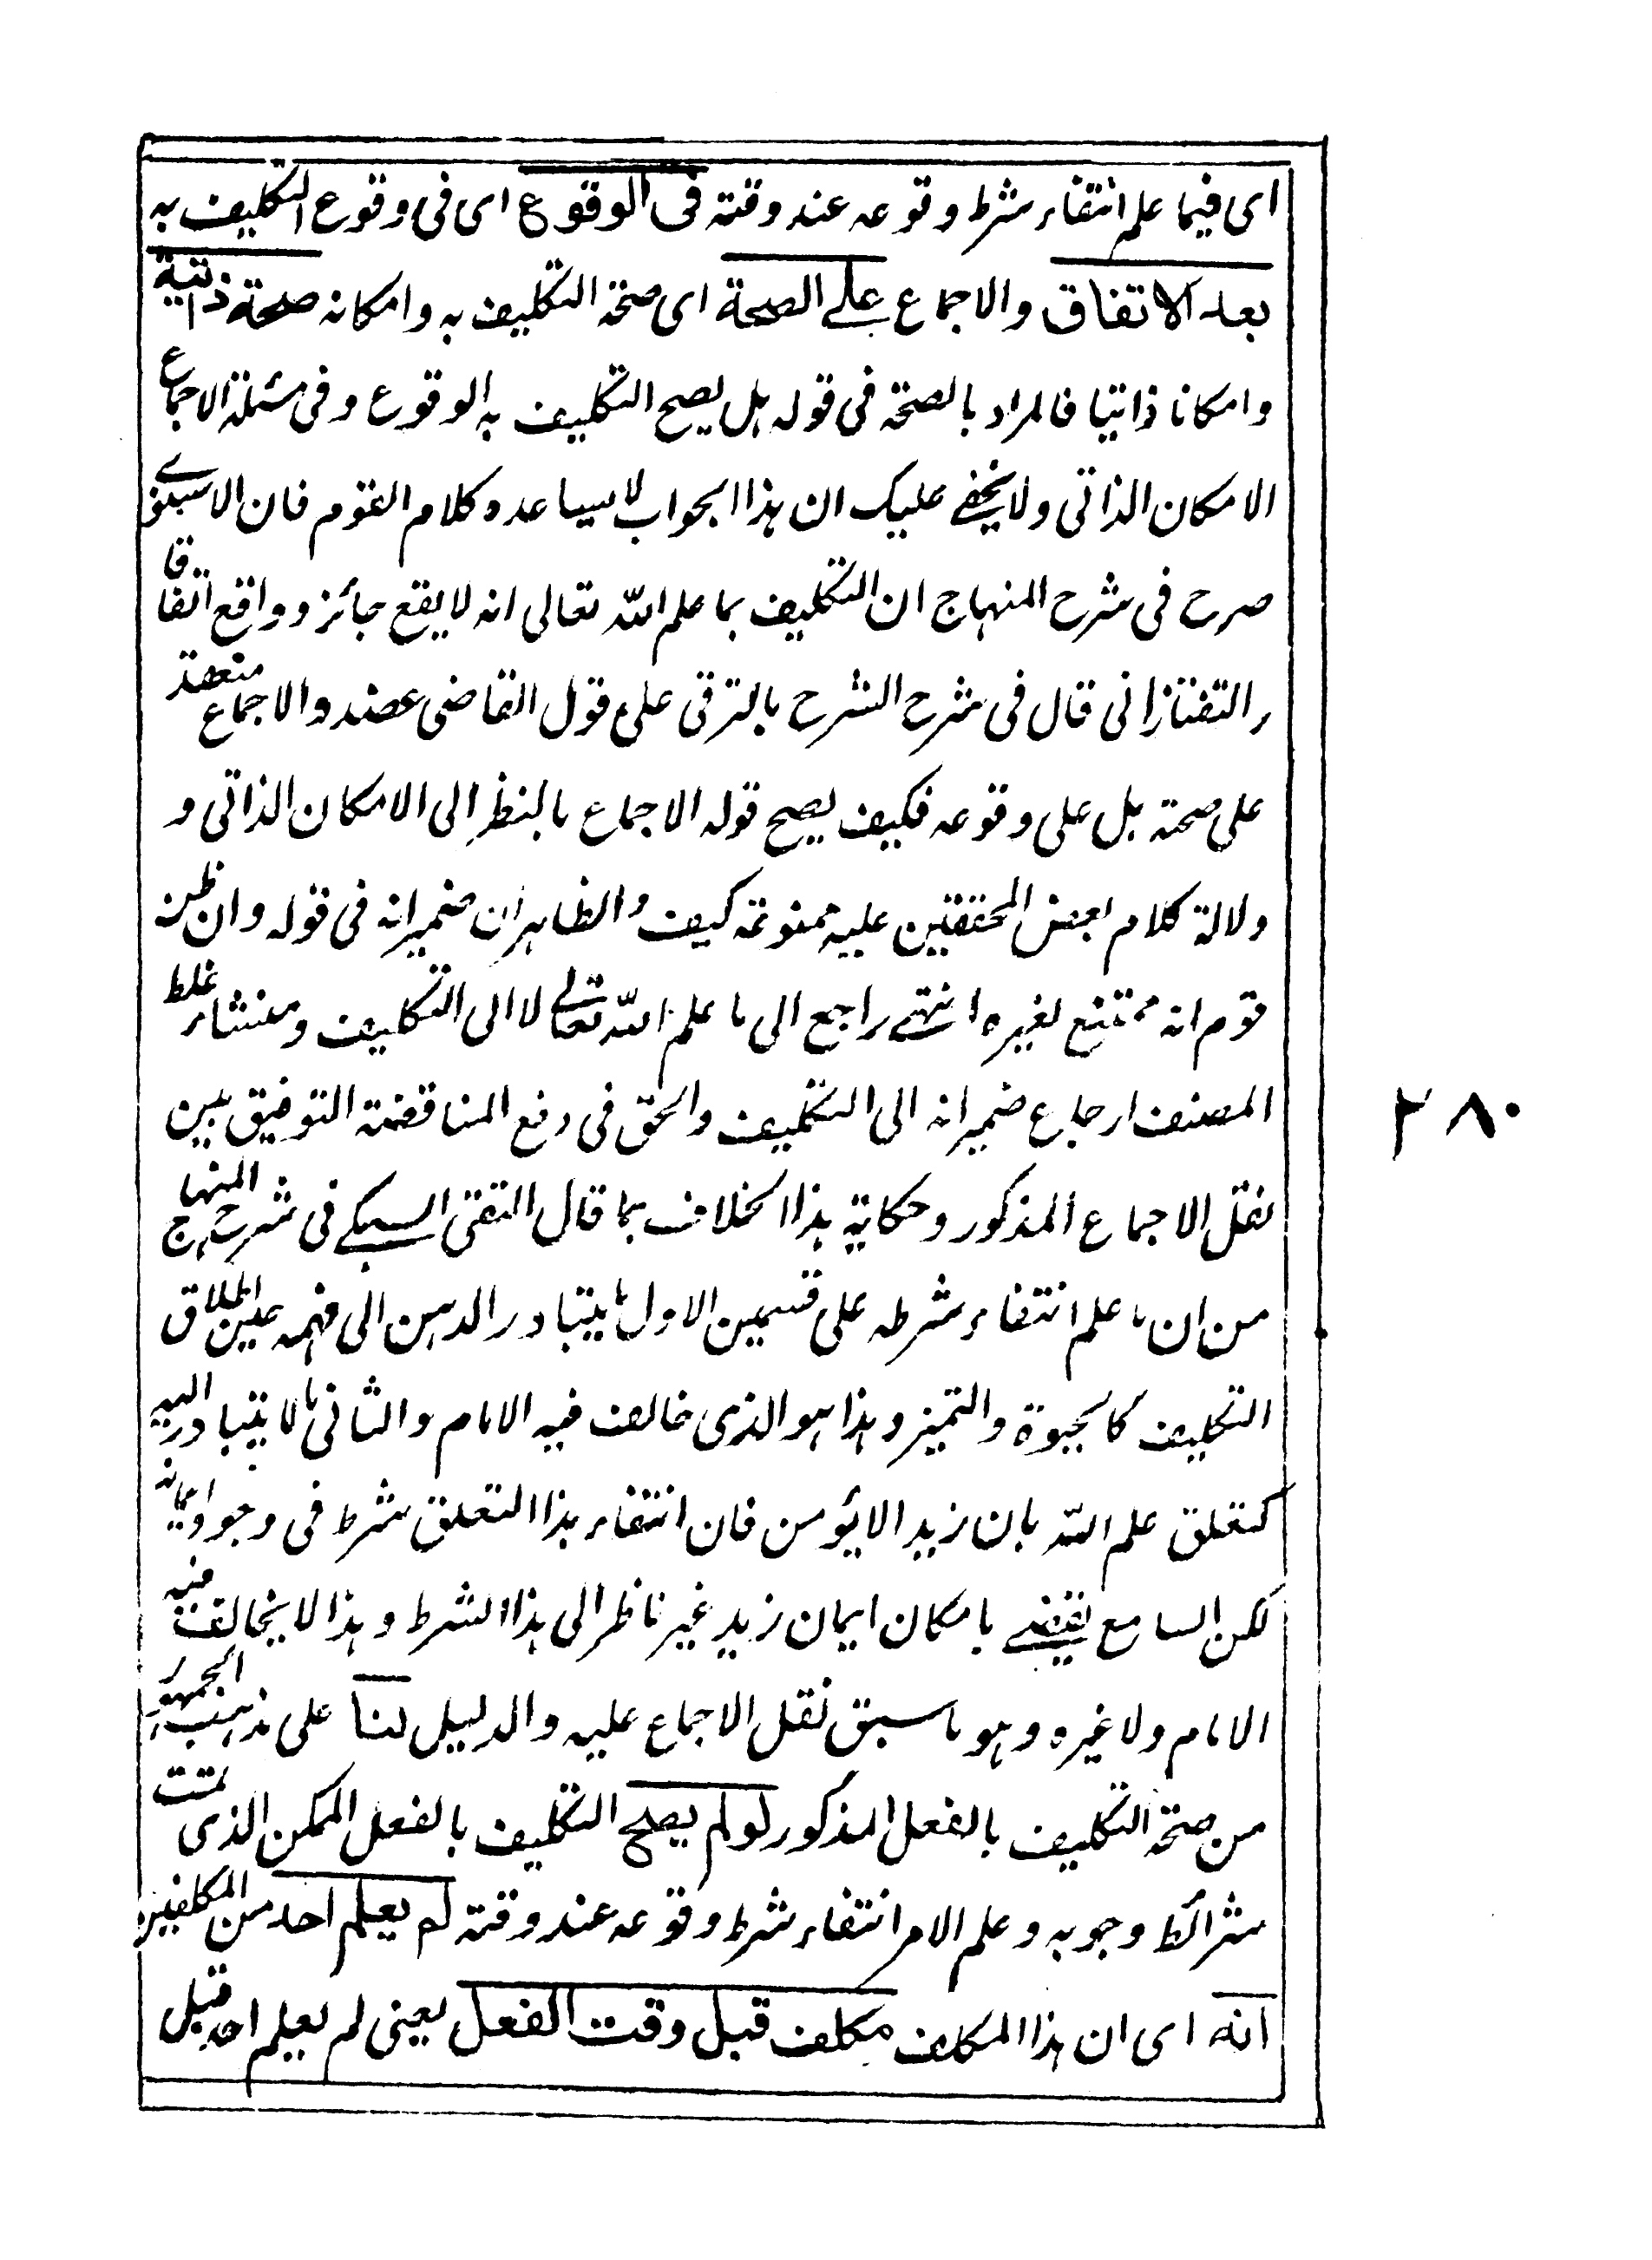 اى فيما علم انتفاء شرط وقوعه عند وقته فى الوقوع اى فى وقوع التكليف به
بعد الاتفاق والاجماع على الصحة اى صحة التكليف به وامكانه صحة ذاتية
وامكانا ذاتيا فالمراد بالصحة فى قوله هل يصح التكليف به الوقوع وفى مسئلة الاجماع
الامكان الذاتى ولا يخفى عليك ان هذا الجواب لا يساعده كلام القوم فان الاسنوى
صرح فى شرح المنهاج ان التكليف بما علم الله تعالى انه لا يقع جائز وواقع اتفاقا
والتفتازانى قال فى شرح الشرح بالترقى على قول القاضى عضد والاجماع منعقد
على صحته بل على وقوعه فكيف يصح قوله الاجماع بالنظر الى الامكان الذاتى و
دلالة كلام بعض المحققين عليه ممنوعة كيف والظاهر ان ضمير انه فى قوله وان ظن
قوم انه ممتنع لغيره انتهى راجع الى ما علم الله تعالى لا الى التكليف ومنشاء غلط
المصنف ارجاع ضمير انه الى التكليف والحق فى دفع المناقضة التوفيق بين
نقل الاجماع المذكور وحكاية هذا الخلاف بما قال التقى السبكى فى شرح المنهاج
من ان ما علم انتفاء شرطه على قسمين الاول ما يتبادر الذهن الى فهمه حين اطلاق
التكليف كالحيوة والتميز وهذا هو الذى خالف فيه الامام والثانى ما لا يتبادر اليه
كتعلق علم الله بان زيدا لا يؤمن فان انتفاء هذا التعلق شرط فى وجود ايمانه
لكن السامع يقضى بامكان ايمان زيد غير ناظر الى هذا الشرط وهذا لا يخالف فيه
الامام ولا غيره وهو ما سبق نقل الاجماع عليه والدليل لنا على مذهب الجمهور
من صحة التكليف بالفعل المذكور لو لم يصح التكليف بالفعل الممكن الذى تمت
شرائط وجوبه وعلم الامر انتفاء شرط وقوعه عند وقته لم يعلم احد من المكلفين
انه اى ان هذا المكلف مكلف قبل وقت الفعل يعنى لم يعلم احد قبل
٢٨٠